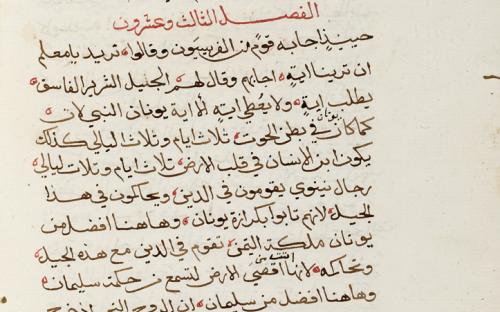 الفصل الثالث وعشرون
حينيذ اجابه قوم من الفريسيون وقالوا تريد يا معلم
ان ترينا ايه اجابهم وقال لهم الجيل الشرير الفاسق
يطلب ايه ولا يعطي ايه الا اية يونان النبي لان
كما كان يونان في بطن الحوت ثلاث ايام وثلاث ليالي كذلك
يكون ابن الانسان في قلب الارض ثلاث ايام وثلاث ليالي
رجال نينوي يقومون في الدين ويحاكون في هذا
الجيل لانهم تابوا بكرازة يونان وهاهنا افضل من
يونان ملكة التيمن تقوم في الدين مع هذه الجيل
وتحاكمه لانها اتت من اقصي الارض لتسمع من حكمة سليمان
وهاهنا افضل من سليمان ان الروح